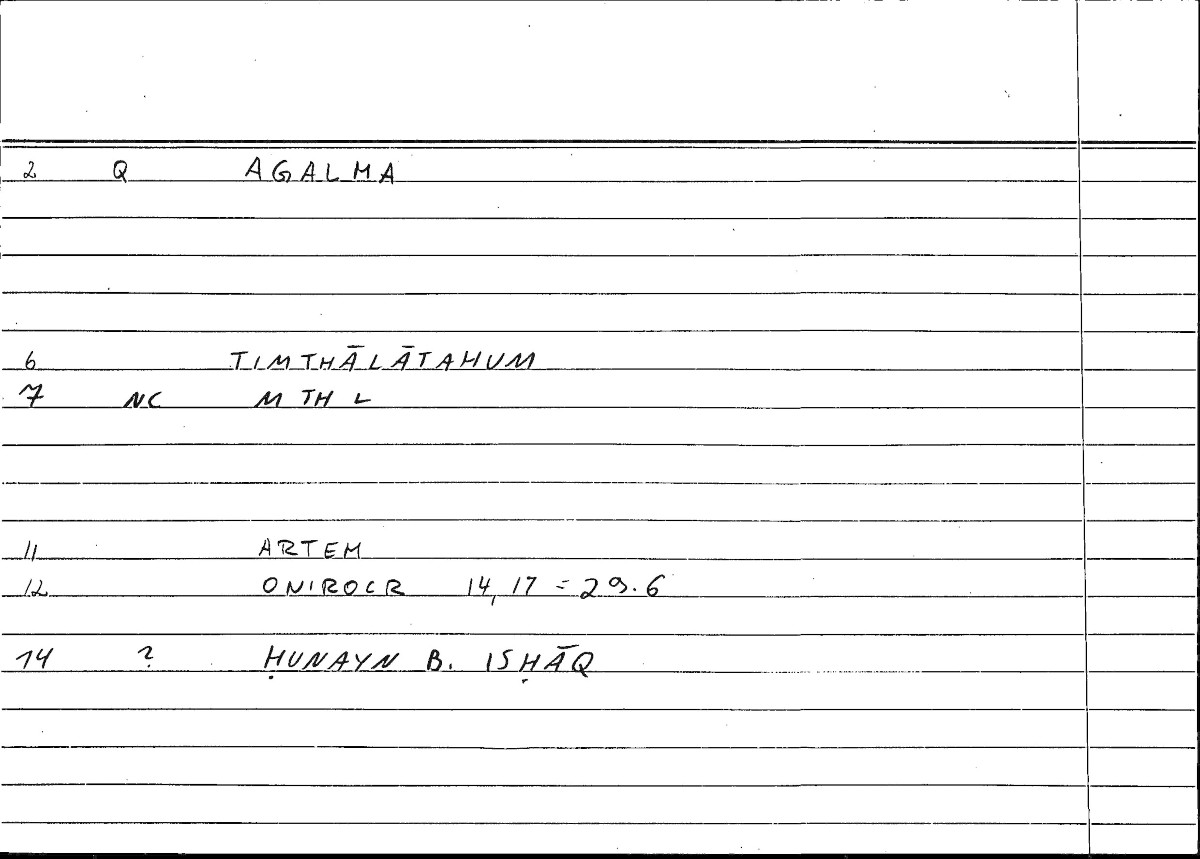 2 Q AGALMA
6 TIMTHĀLĀTAHUM
7 NC M TH L
11 ARTEM
12 ONIROCR 14,17 = 29.6
14 ? ḤUNAYN B. ISḤĀQ